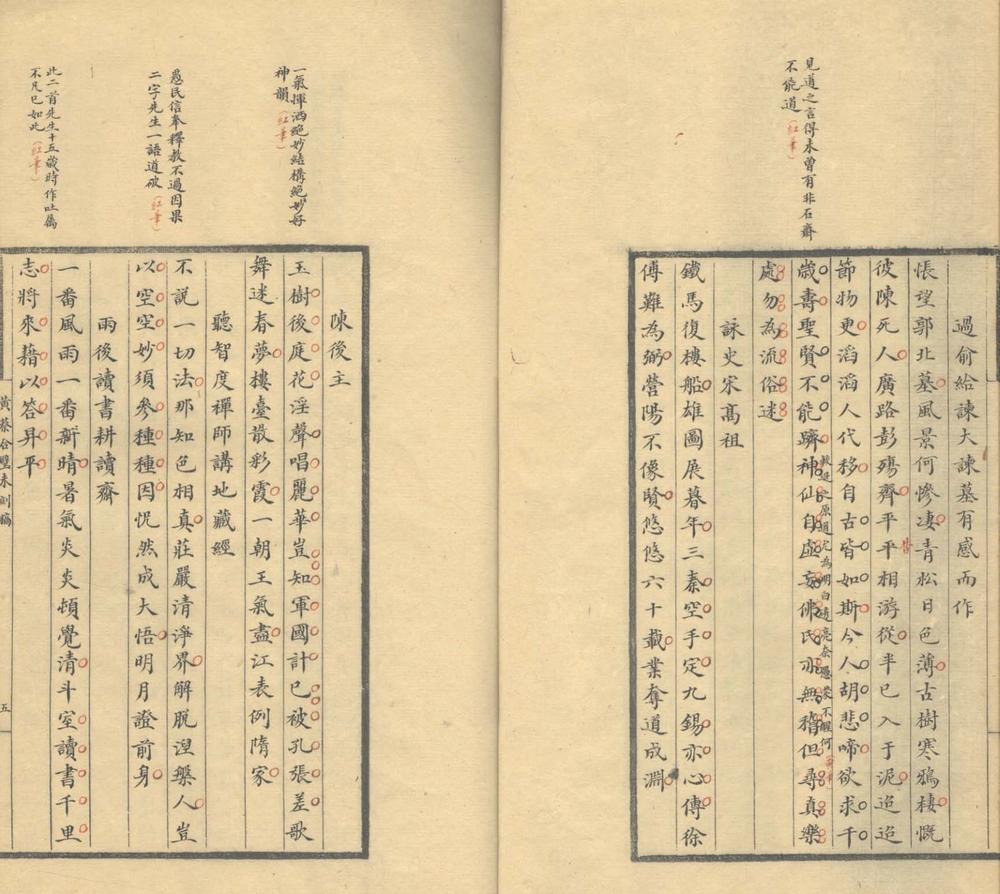 見道之言得未曾有非石齋
不能道（紅筆）
過俞給諫大諫墓有感而作
悵望郭北墓風景何慘凄青松日色薄古樹寒鴉棲慨
彼陳死人廣路彭殤齊平平相游從半已入于泥迢迢
昔
節物更滔滔人代移自古皆如斯今人胡悲啼欲求千
歲壽聖賢不能躋神仙自虛妄佛氏亦無稽但尋真樂
處勿為流俗迷
詠史宋高祖
鐵馬復樓船雄圖展暮年三秦空手定九錫亦心傳徐
傅難為弼營陽不像賢悠悠六十載業奪道成淵
一氣揮洒絕妙結構絕妙好
神韻（紅筆）
愚民信奉釋教不過因果
二字先生一語道破（紅筆）
此二首先生十五歲時作吐屬
不凡已如此（紅筆）
陳後主
玉樹後庭花淫聲唱麗華豈知軍國計已被孔張差歌
舞迷春夢樓臺散彩霞一朝王氣盡江表例隋家
聽智度禪師講地藏經
不說一切法那知色相真莊嚴清淨界解脫涅槃人豈
以空空妙須參種種因怳然成大悟明月證前身
雨後讀書耕讀齋
一番風雨一番新晴暑氣炎炎頓覺清斗室讀書千里
志將來藉以答昇平
黃蔡合璧未刻稿
五